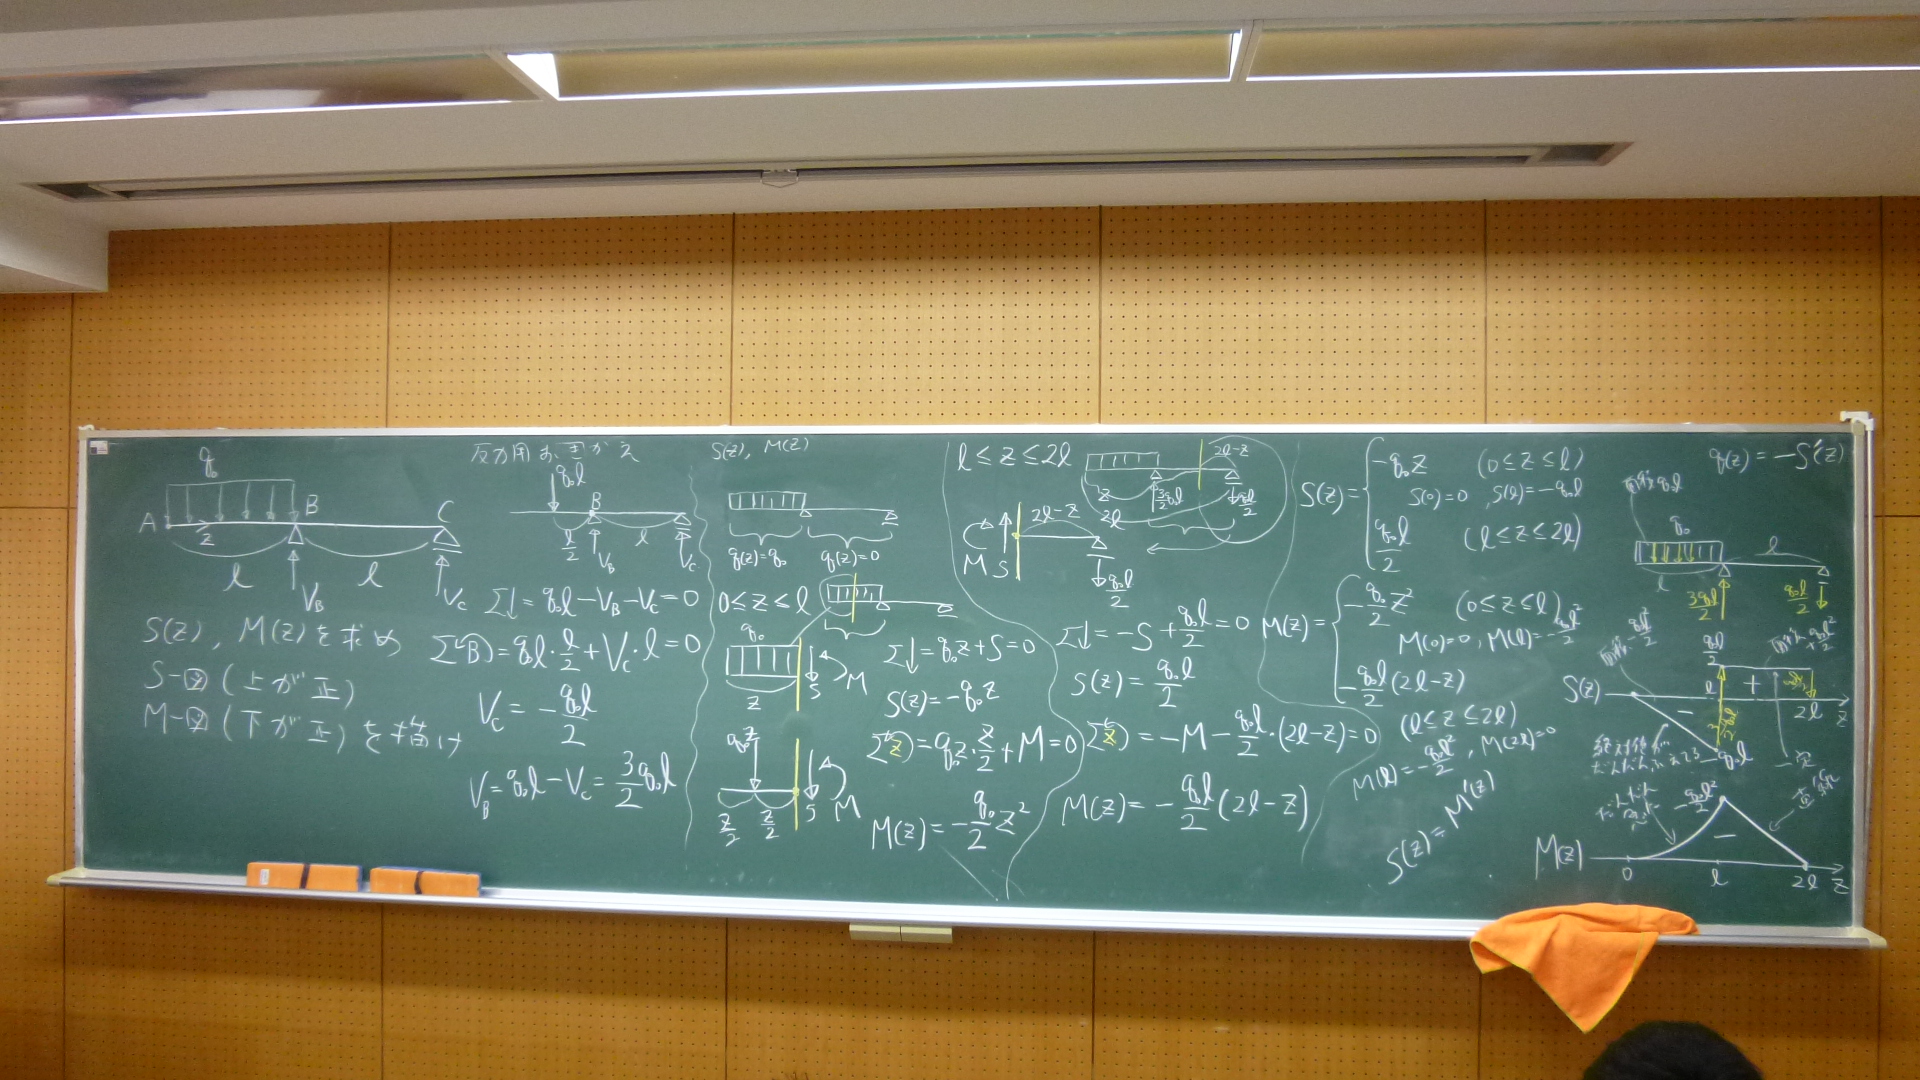 q₀
A
B
C
z
l
l
V_B
V_C
S(z), M(z)を求め
S-図(上が正)
M-図(下が正)を描け
反力用おきかえ
q₀l
B
l/2
l
V_B
V_C
Σ↓= q₀l-V_B-V_C=0
Σ(B)= q₀l・l/2+V_C・l=0
V_C= -q₀l/2
V_B= q₀l-V_C= 3/2 q₀l
S(z), M(z)
q(z)=q₀
q(z)=0
0≤z≤l
q₀
z
S
M
Σ↓= q₀z+S=0
S(z)= -q₀z
q₀z
z/2
z/2
S
M
Σ(z)= q₀z・z/2+M=0
M(z)= -q₀/2 z²
l≤z≤2l
2l-z
z
3/2 q₀l
q₀l/2
2l
M
S
2l-z
q₀l/2
Σ↓= -S+q₀l/2=0
S(z)= q₀l/2
Σ(z)= -M-q₀l/2・(2l-z)=0
M(z)= -q₀l/2(2l-z)
S(z)=
-q₀z (0≤z≤l)
S(0)=0, S(l)=-q₀l
q₀l/2 (l≤z≤2l)
M(z)=
-q₀/2 z² (0≤z≤l)
M(0)=0, M(l)=-q₀l²/2
-q₀l/2(2l-z)
(l≤z≤2l)
M(l)=-q₀l²/2, M(2l)=0
S(z)=M'(z)
q(z)= -S'(z)
面積q₀l
q₀
l
l
3q₀l/2
q₀l/2
面積-q₀l²/2
q₀l/2
面積+q₀l²/2
S(z)
l
+
-
2l
z
3/2 q₀l
-q₀l
絶対値が
だんだんふえてる
一定
だんだん
直線
-q₀l²/2
-
M(z)
0
l
2l
z